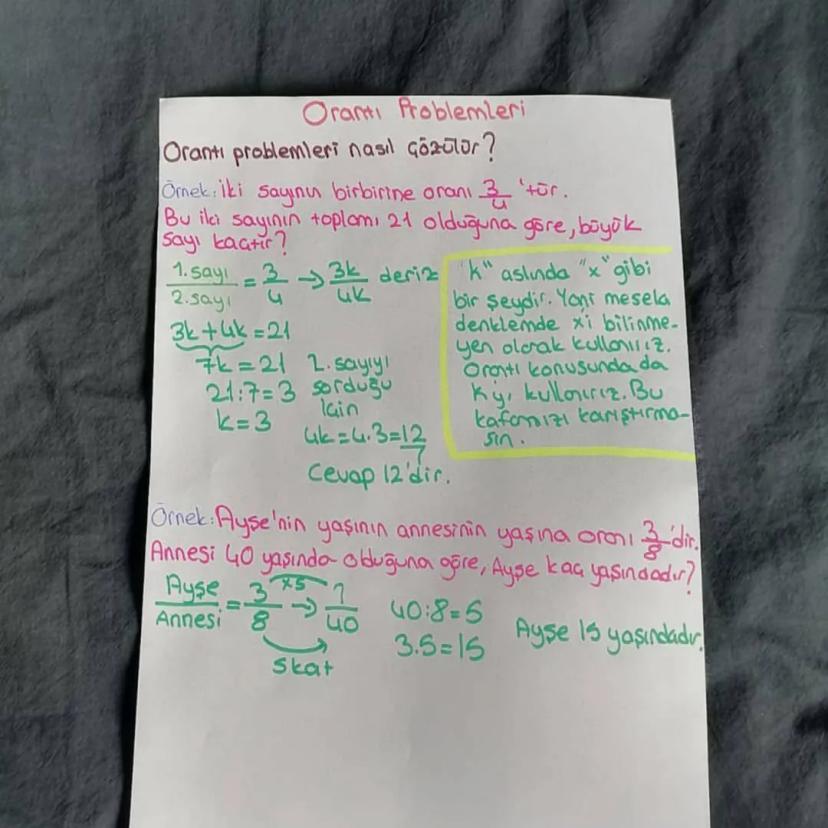 Orantı Problemleri
Orantı problemleri nasıl çözülür?
Örnek: İki sayının birbirine oranı 3/4 'tür.
Bu iki sayının toplamı 21 olduğuna göre, büyük
sayı kaçtır?
1. sayı / 2. sayı = 3/4 → 3k/4k deriz
3k + 4k = 21
7k = 21
21:7=3
k=3
2. sayıyı
sorduğu
için
4k=4.3=12
Cevap 12'dir.
"k" aslında "x" gibi
bir şeydir. Yani mesela
denklemde x'i bilinme-
yen olarak kullanırız.
Orantı konusunda da
k'yı kullanırız. Bu
kafamızı karıştırma-
sın.
Örnek: Ayşe'nin yaşının annesinin yaşına oranı 3/8 'dir.
Annesi 40 yaşında olduğuna göre, Ayşe kaç yaşındadır?
Ayşe / Annesi = 3/8 → ?/40
x5
5kat
40:8=5
3.5=15
Ayşe 15 yaşındadır.